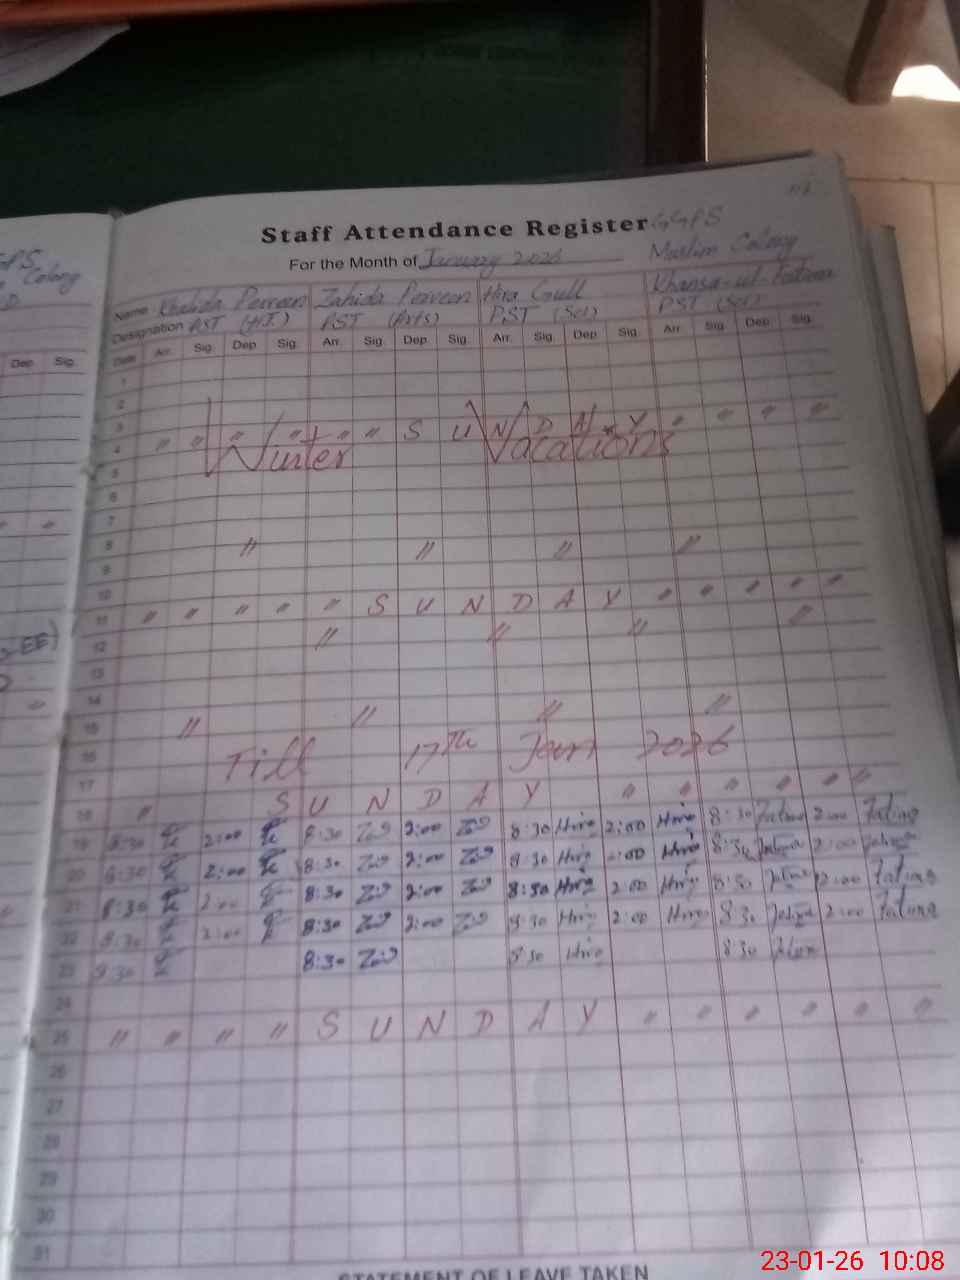 Staff Attendance Register GGPS
For the Month of January 2026 Muslim Colony
Name Khalida Perveen Zahida Perveen Hira Gull Khansa-ul-Fatima
Designation PST (Arts) PST (Sci) PST (Sci)
Date Arr. Sig. Dep. Sig. Arr. Sig. Dep. Sig. Arr. Sig. Dep. Sig. Arr. Sig. Dep. Sig.
1
2
3
4 " " " " " " S U N D A Y " " " "
Winter Vacations
5
6
7
8 " " " "
9
10
11 " " " " " S U N D A Y " " " " "
12 " " " "
13
14
15 " " " "
16 Till 17th Jan 2026
17
18 " S U N D A Y " " " " " "
19 8:30 2:00 8:30 2:00 8:30 Hira 2:00 Hira 8:30 Fatima 2:00 Fatima
20 8:30 2:00 8:30 2:00 8:30 Hira 2:00 Hira 8:30 Fatima 2:00 Fatima
21 8:30 2:00 8:30 2:00 8:30 Hira 2:00 Hira 8:30 Fatima 2:00 Fatima
22 8:30 2:00 8:30 2:00 8:30 Hira 2:00 Hira 8:30 Fatima 2:00 Fatima
23 8:30 8:30 8:30 Hira 8:30
24
25 " " " " S U N D A Y " " " " " "
26
27
28
29
30
31
STATEMENT OF LEAVE TAKEN
GPS
Colony
Dep Sig.
EE)
23-01-26 10:08